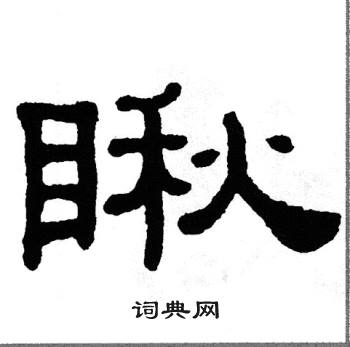 瞅
词典网